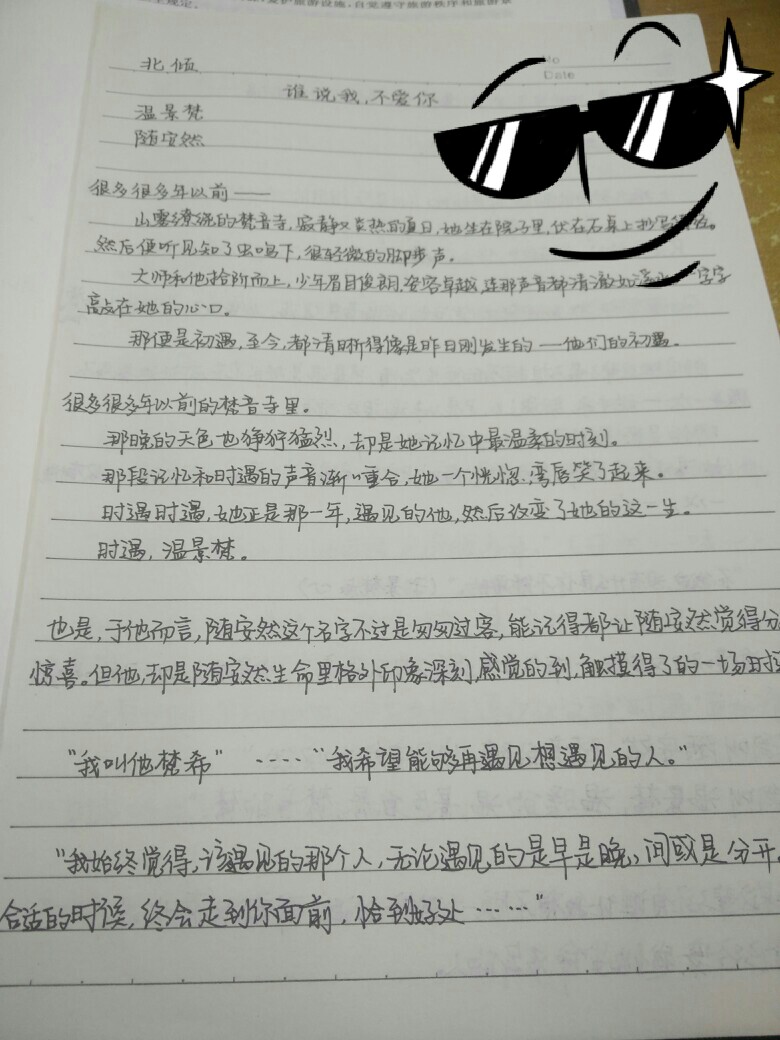 护旅游设施，自觉遵守旅游秩序和旅游景
北倾
Date
谁说我，不爱你
温景梵
随安然
很多很多年以前——
山雾缭绕的梵音寺，寂静又炎热的夏日，她坐在院子里，伏在石桌上抄写
然后便听见知了虫鸣下，很轻微的脚步声。
大师和他拾阶而上，少年眉目俊朗，姿容卓越，连那声音都清澈如 字字
敲在她的心口。
那便是初遇，至今，都清晰得像是昨日刚发生的——他们的初遇。
很多很多年以前的梵音寺里。
那晚的天色也狰狞猛烈，却是她记忆中最温柔的时刻。
那段记忆和时遇的声音渐〃重合，她一个恍惚，弯唇笑了起来。
时遇时遇，她正是那一年，遇见的他，然后改变了她的这一生。
时遇，温景梵。
也是，于他而言，随安然这个名字不过是匆匆过客，能记得都让随安然觉得分
惊喜。但他，却是随安然生命里格外印象深刻，感觉的到，触摸得了的一场时
“我叫他梵希” ····“我希望能够再遇见想遇见的人。”
“我始终觉得，该遇见的那个人，无论遇见的是早是晚，间或是分开，
合适的时候，终会走到你面前，恰到好处······”